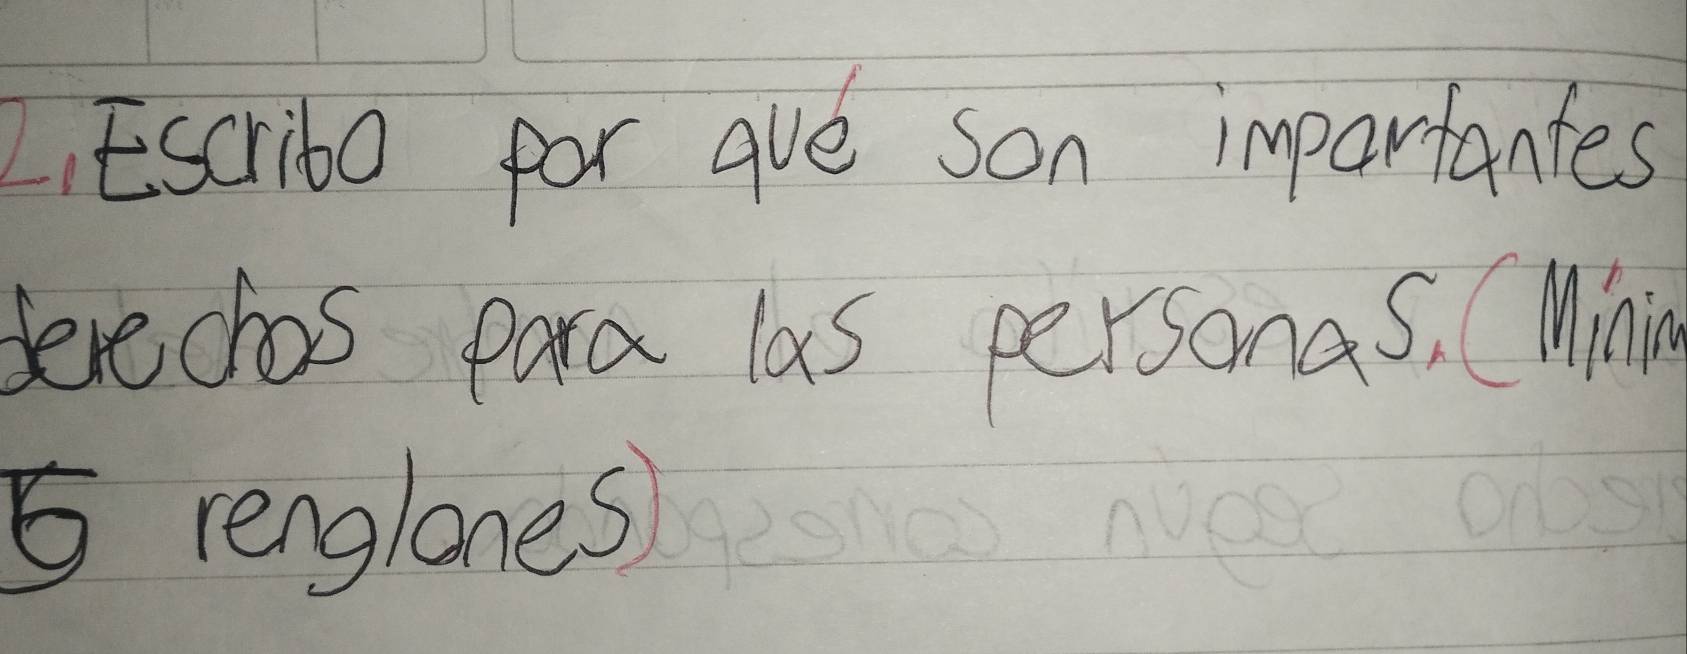 2. Escribo por qué son importantes
derechos para las personas. (Mínim
5 renglones)